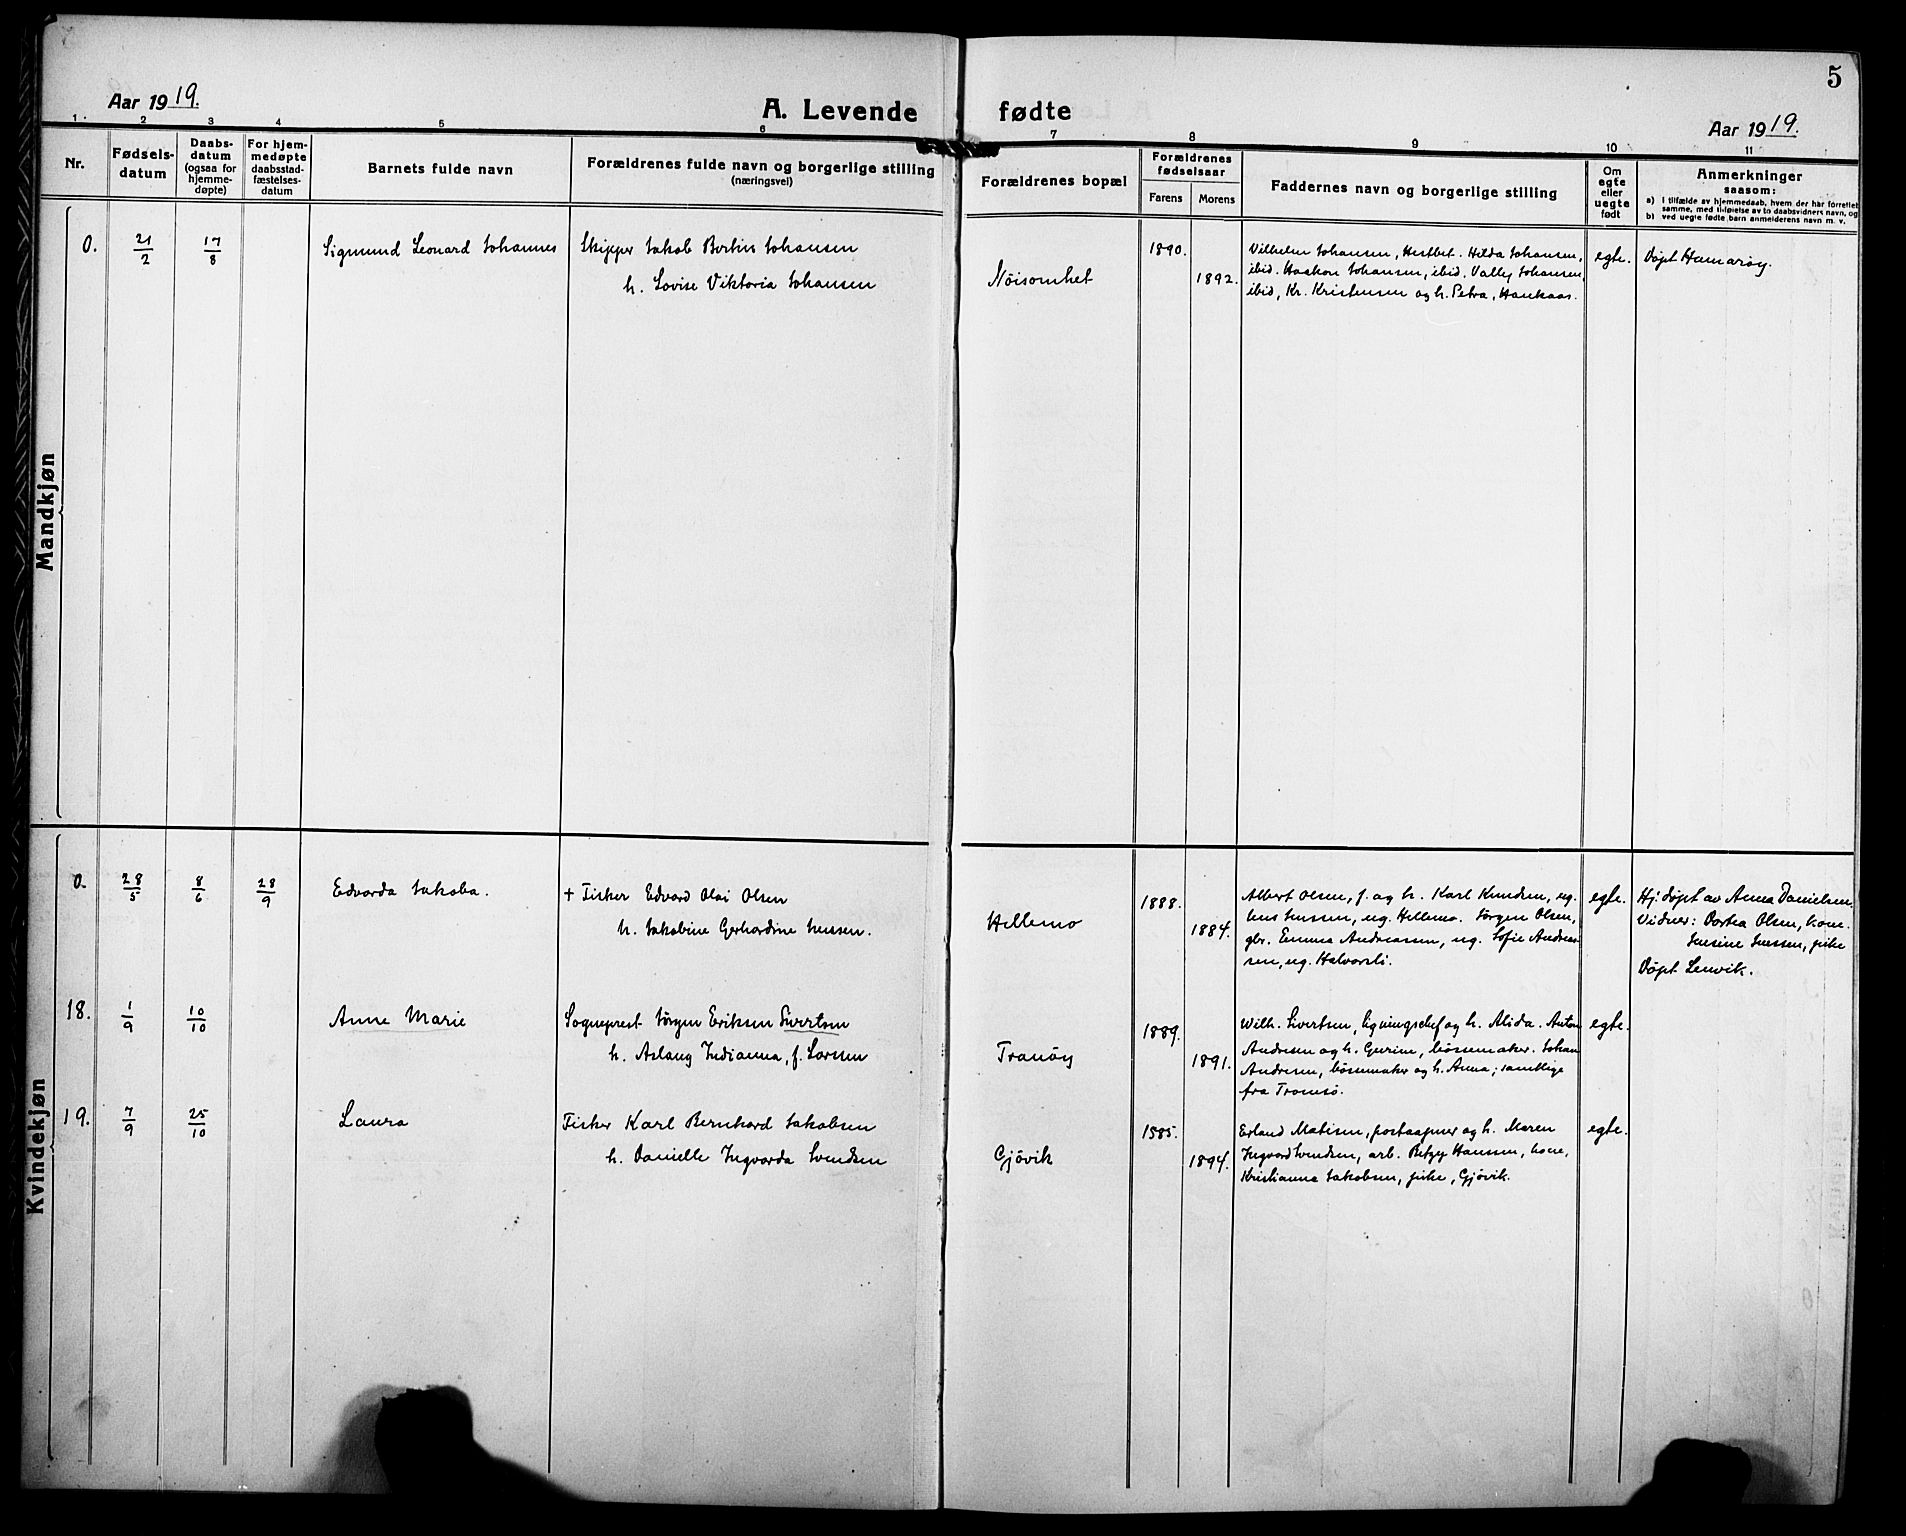 Aar 1919.
A. Levende fødte
5
Aar 1919.
1. 2 3 4 5 6 7 8 9 10 11
Nr.
Fødsels-
datum
Daabs-
datum
(ogsaa for
hjemme-
døpte)
For hjem-
medøpte
daabsstad-
fæstelses-
datum
Barnets fulde navn
Forældrenes fulde navn og borgerlige stilling
(næringsvei)
Forældrenes bopæl
Forældrenes
fødselsaar
Farens Morens
Faddernes navn og borgerlige stilling
Om
egte
eller
uegte
født
Anmerkninger
saasom:
a) I tilfælde av hjemmedaab, hvem der har forrettet
samme, med tilføielse av to daabsvidners navn, og
b) ved uegte fødte barn anmelderens navn m. v.
Mandkjøn
0. 21/2 17/8 Sigmund Leonard Johannes
Skipper Jakob Bertin Johansen
h. Lovise Viktoria Johansen
Nöisomhet
1890.
1892.
Vilhelm Johansen, Hestbet. Hilda Johansen,
ibid. Haakon Johansen, ibid. Vally Johansen,
ibid, Kr. Kristensen og h. Petra, Haukaas.
egte.
Döpt Hamaröy.
Kvindekjøn
0. 28/5 8/6 28/9 Edvarda Jakoba.
+ Fisker Edvard Olai Olsen
h. Jakobine Gerhardine Jenssen.
Hellemo
1888.
1884.
Albert Olsen, f. og h. Karl Knudsen, ug.
Jens Jenssen, ug. Hellemo. Jörgen Olsen,
gbr. Emma Andreassen, ug. Sofie Andreas-
sen, ug. Halvorsli.
egte.
Hj. döpt av Anna Danielsen.
Vidner: Dortea Olsen, kone.
Jensine Jenssen, pike
Döpt Lenvik.
18. 1/9 10/10 Anne Marie
Sogneprest Jörgen Eriksen Sivertsen
h. Aslaug Indianna, f. Larssen
Tranöy
1889.
1891.
Wilh. Sivertsen, ligningschef og h. Alida. Anton
Andresen og h. Gurine, bössemaker. Johan
Andresen, bössemaker og h. Anna; samtlige
fra Tromsö.
egte.
19. 7/9 25/10 Laura
Fisker Karl Bernhard Jakobsen
h. Danielle Ingvarda Svendsen
Gjövik
1885.
1894.
Erland Matisen, postaapner og h. Maren
Ingvard Svendsen, arb. Betzy Hansen, kone,
Kristianna Jakobsen, pike, Gjövik.
egte.